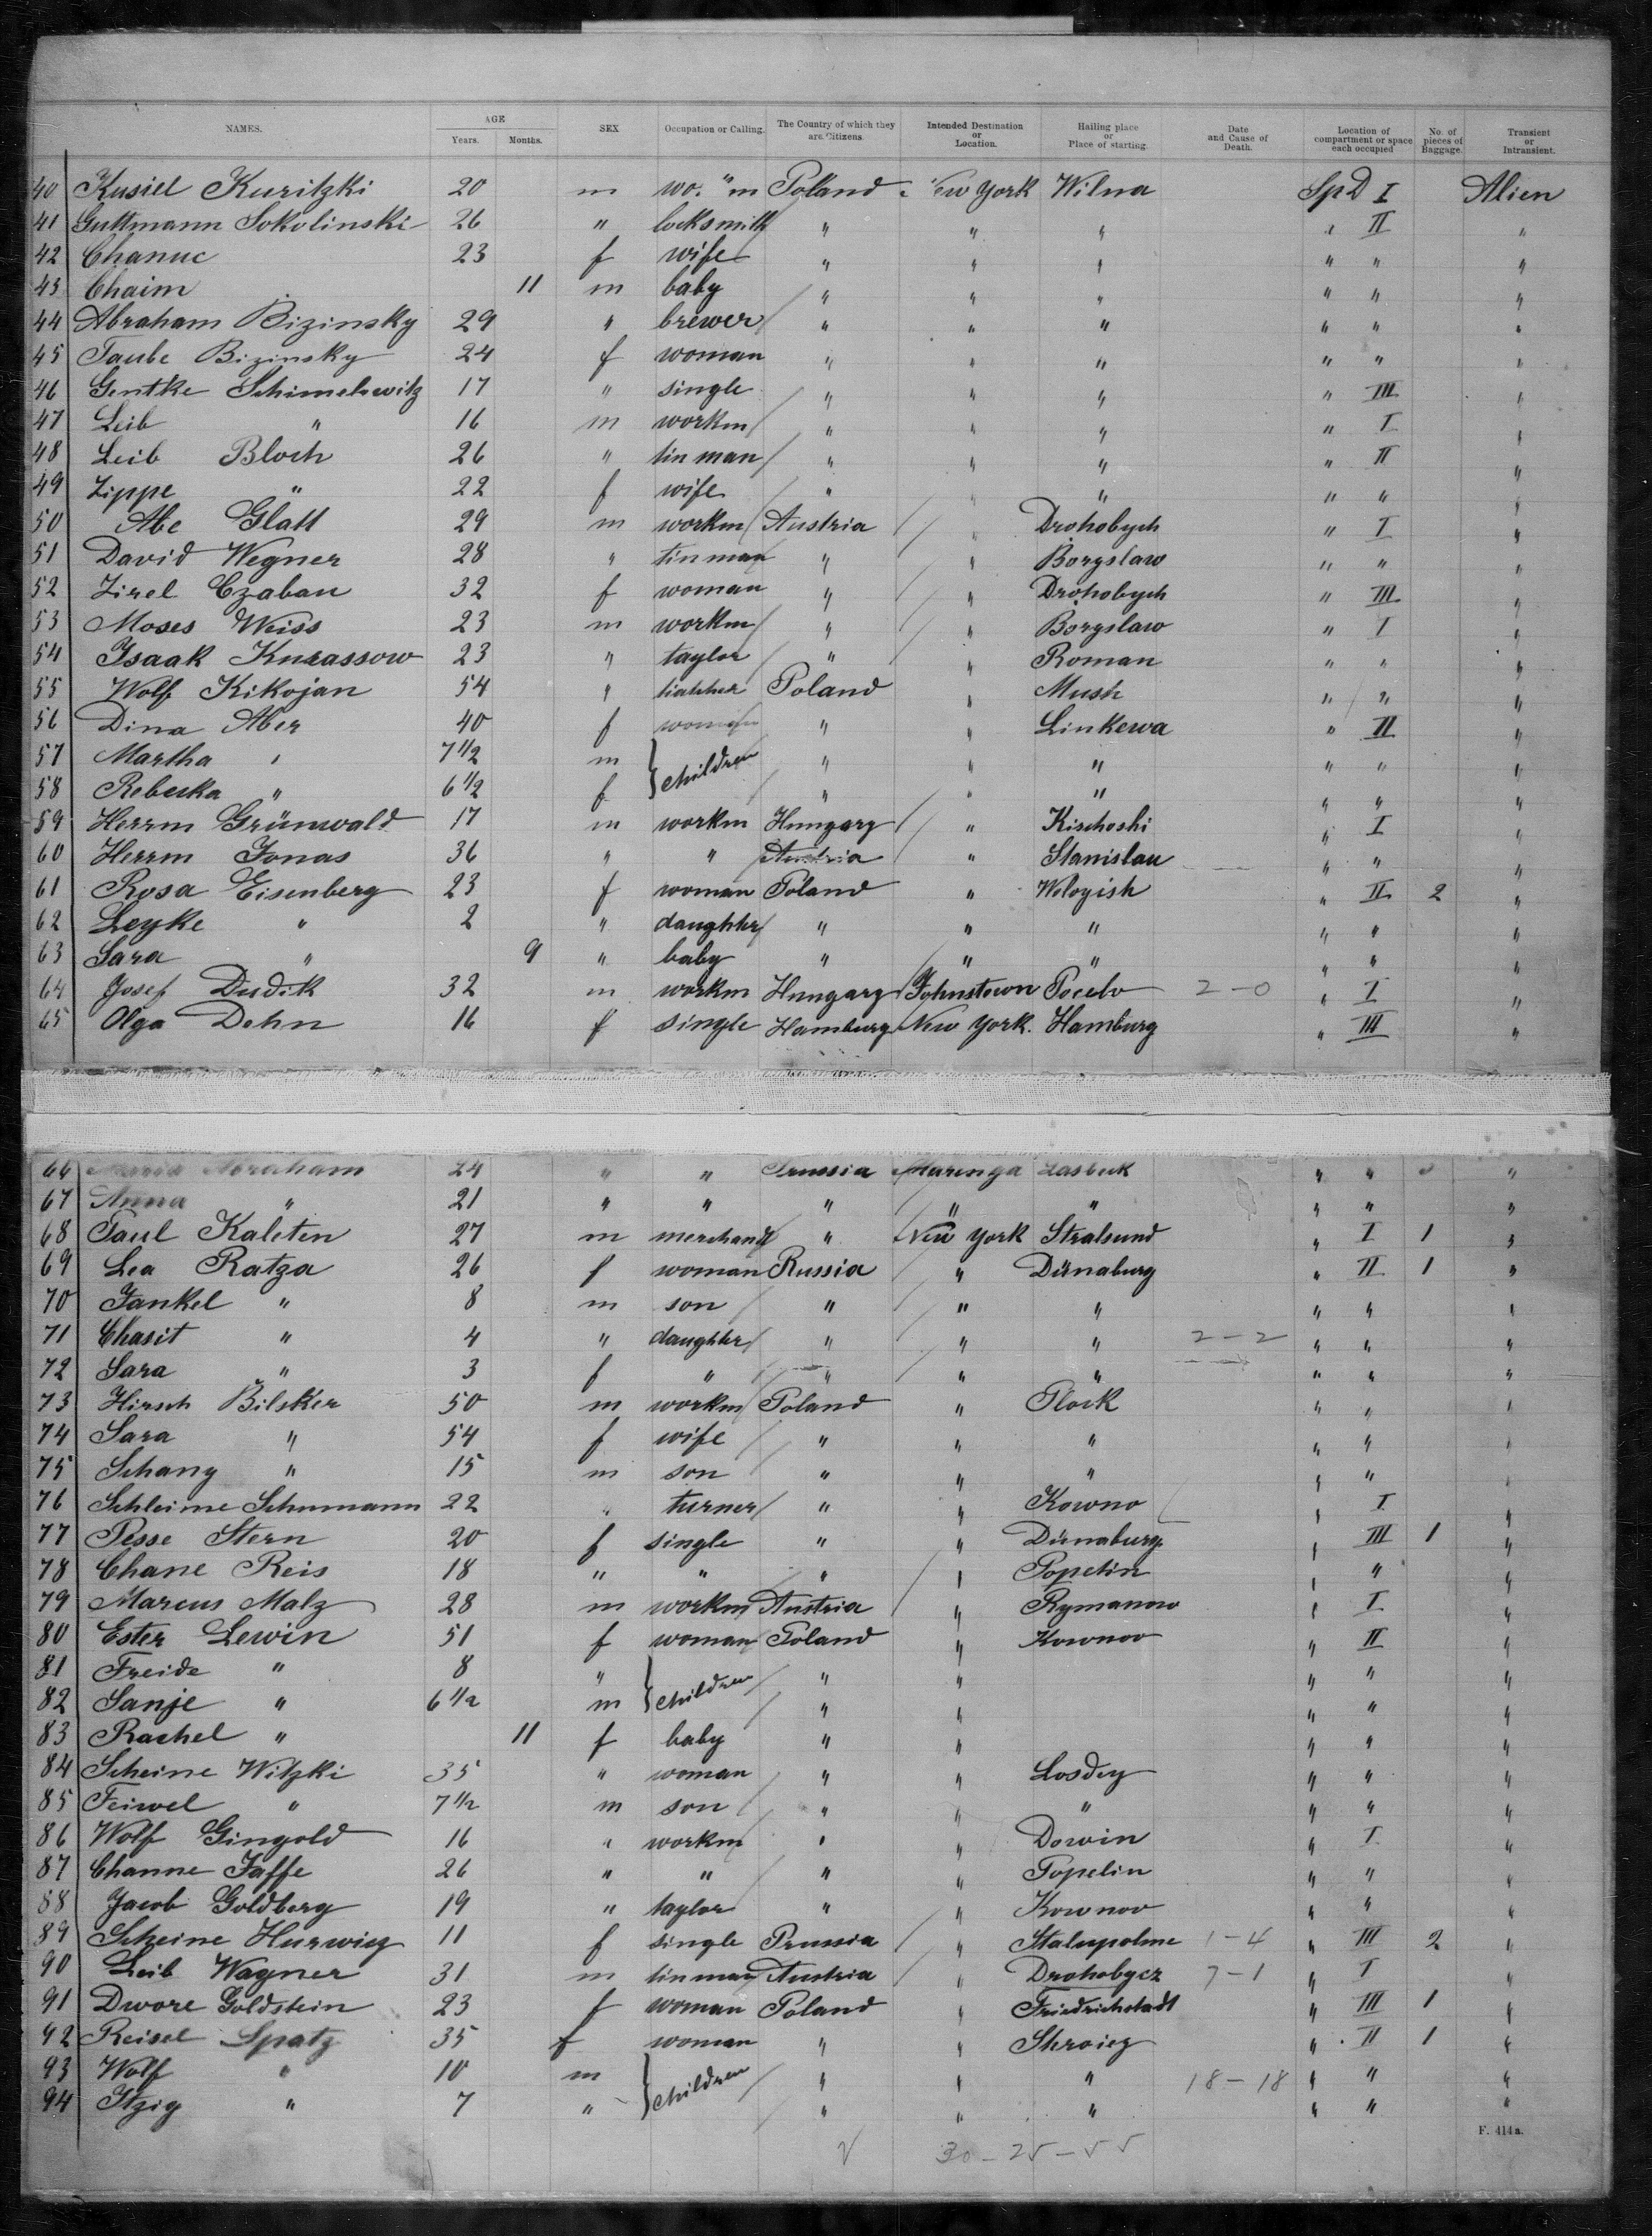 NAMES. AGE Years. Months. SEX Occupation or Calling. The Country of which they are Citizens. Intended Destination or Location. Hailing place or Place of starting. Date and Cause of Death. Location of compartment or space each occupied No. of pieces of Baggage. Transient or Intransient.
40 Kusiel Kuritzki 20 m wo. " m Poland New York Wilna SpD I Alien
41 Guttmann Sokolinski 26 " locksmith " " " " II "
42 Chanuc 23 f wife " " " " " "
43 Chaim 11 m baby " " " " " "
44 Abraham Bizinsky 29 " brewer " " " " " "
45 Taube Bizinsky 24 f woman " " " " " "
46 Gentke Schimelewitz 17 " single " " " " III "
47 Leib " 16 m workm " " " " I "
48 Leib Bloch 26 " tin man " " " " II "
49 Zippe " 22 f wife " " " " " "
50 Abe Glatt 29 m workm Austria " Drohobych " I "
51 David Wegner 28 " tin man " " Boryslaw " " "
52 Zirel Czaban 32 f woman " " Drohobych " III "
53 Moses Weiss 23 m workm " " Boryslaw " I "
54 Isaak Knrassow 23 " taylor " " Roman " " "
55 Wolf Kikojan 54 " Poland " Mush " " "
56 Dina Aber 40 f woman " " Linkewa " II "
57 Martha " 7 1/2 m } children " " " " " "
58 Rebecka " 6 1/2 f " " " " " "
59 Herrm Grünwald 17 m workm Hungary " Kischoshi " I "
60 Herrm Jonas 36 " " Austria " Stanislau " " "
61 Rosa Eisenberg 23 f woman Poland " Wiloyish " II 2 "
62 Leyke " 2 " daughter " " " " " "
63 Sara " 9 " baby " " " " " "
64 Josef Dudik 32 m workm Hungary Johnstown Pocelo 2-0 " I "
65 Olga Dehn 16 f single Hamburg New York. Hamburg " III "
66 Abraham 24 " " Prussia Marenga Lasbeck " " "
67 Anna " 21 " " " " " " " "
68 Paul Kaleten 27 m merchant " New York Stralsund " I 1 "
69 Lea Ratza 26 f woman Russia " Dünaburg " II 1 "
70 Jankel " 8 m son " " " " " "
71 Chasit " 4 " daughter " " " 2-2 " " "
72 Sara " 3 f " " " " " " "
73 Hirsch Bilsker 50 m workm Poland " Plock " " "
74 Sara " 54 f wife " " " " " "
75 Schany " 15 m son " " " " " "
76 Schleime Schumann 22 " turner " " Kowno " I "
77 Pesse Stern 20 f single " " Dünaburg " III 1 "
78 Chane Reis 18 " " " " Popelin " " "
79 Marcus Malz 28 m workm Austria " Rymanow " I "
80 Ester Lewin 51 f woman Poland " Kownov " II "
81 Freide " 8 " } children " " " " "
82 Sanje " 6 1/2 m " " " " "
83 Rachel " 11 f baby " " " " "
84 Scheine Witzki 35 " woman " " Losdey " " "
85 Feiwel " 7 1/2 m son " " " " " "
86 Wolf Gingold 16 " workm " " Dowin " I "
87 Channe Jaffe 26 " " " " Popelin " " "
88 Jacob Goldberg 19 " taylor " " Kownov " " "
89 Scheine Hurwicz 11 f single Prussia " Stalupohne 1-4 " III 2 "
90 Leib Wagner 31 m tin man Austria " Drohobycz 7-1 " I "
91 Dwore Goldstein 23 f woman Poland " Friedrichstadt " III 1 "
92 Reisel Spatz 35 f woman " " Skroicz " II 1 "
93 Wolf " 10 m } children " " " 18-18 " " "
94 Itzig " 7 " " " " " " "
F. 414a.
30-25-55